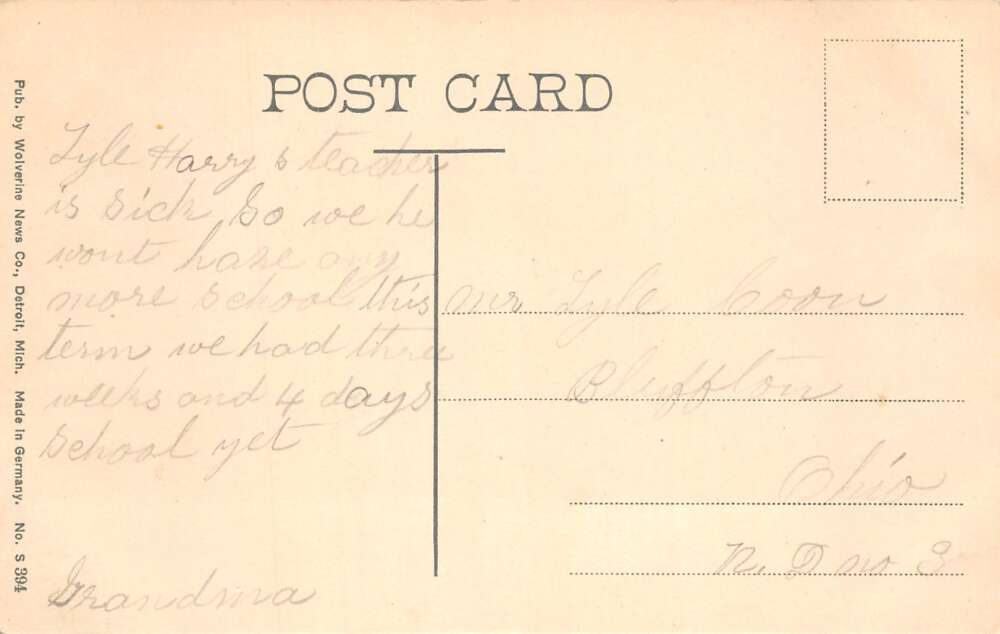 POST CARD
Lyle Harry s teacher
is sick So we he
wont have any
more school this
term we had three
weeks and 4 days
school yet
Grandma
Mr. Lyle Coon
Bluffton
Ohio
R. D no 3
Pub. by Wolverine News Co., Detroit, Mich. Made in Germany. No. S 394